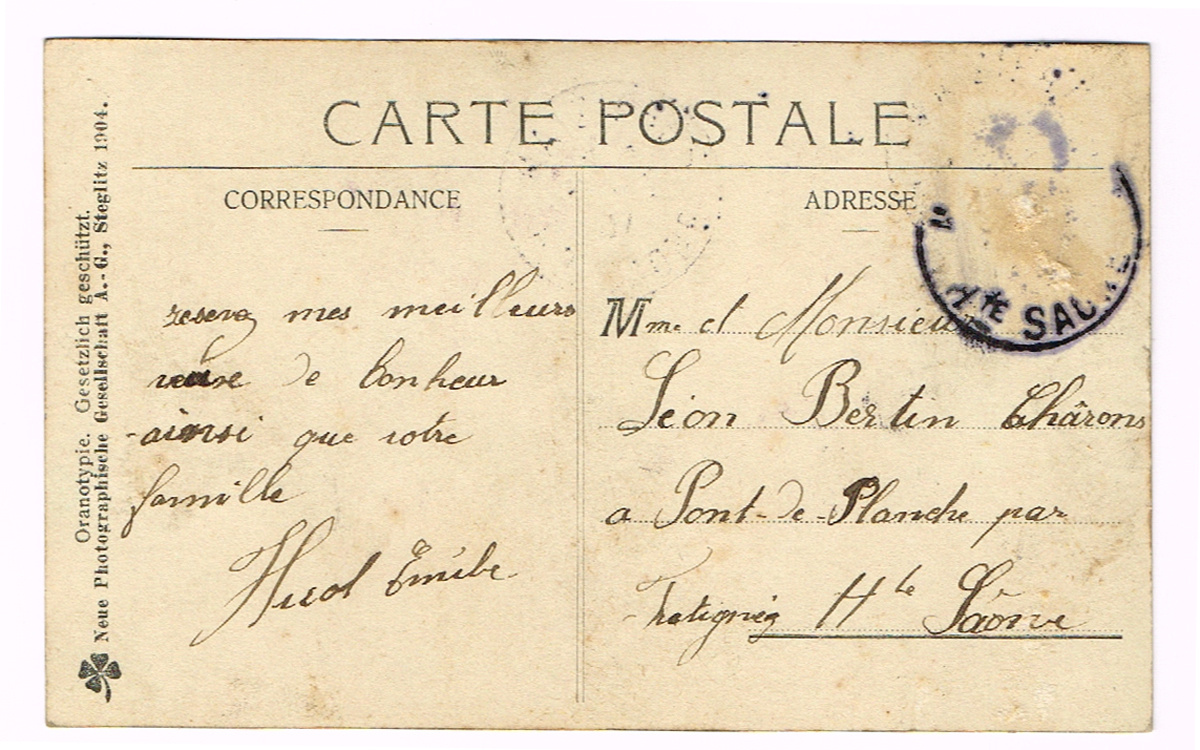 CARTE POSTALE
CORRESPONDANCE
ADRESSE
mes meilleurs
de bonheur
ainsi que votre
famille
Emile
Mme et Monsieur
Léon Bertin Chârons
a Pont-de-Planche par
Hte Saône
Hte SAÔNE
Oranotypie. Gesetzlich geschützt.
Neue Photographische Gesellschaft A.-G., Steglitz 1904.